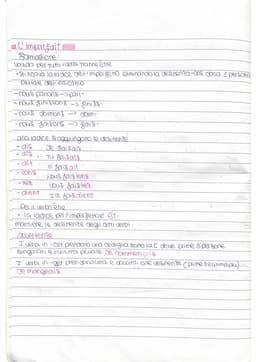 L'imparfait
Formazione
valida per tutti i verbi tranne être
si trova la radice dell'imperfetto eliminando la desinenza -ons dalla 1 persona
plurale del presente
-nous parlons → parl-
-nous finissons → finiss-
-nous dormons → dorm-
-nous faisons → fais-
alla radice si aggiungono le desinenze
-ais je faisais
-ais tu faisais
-ait il faisait
-ions nous faisions
-iez vous faisiez
-aient ils faisaient
Per il verbo être
la radice per l'imperfetto è ét-
mantiene le desinenze degli altri verbi
avvertenze
I verbi in -cer prendono una cediglia sotto la c delle prime 3 persone
singolari e terza plurale je commençais
I verbi in -ger prendono una e davanti alle desinenze
je mangeais